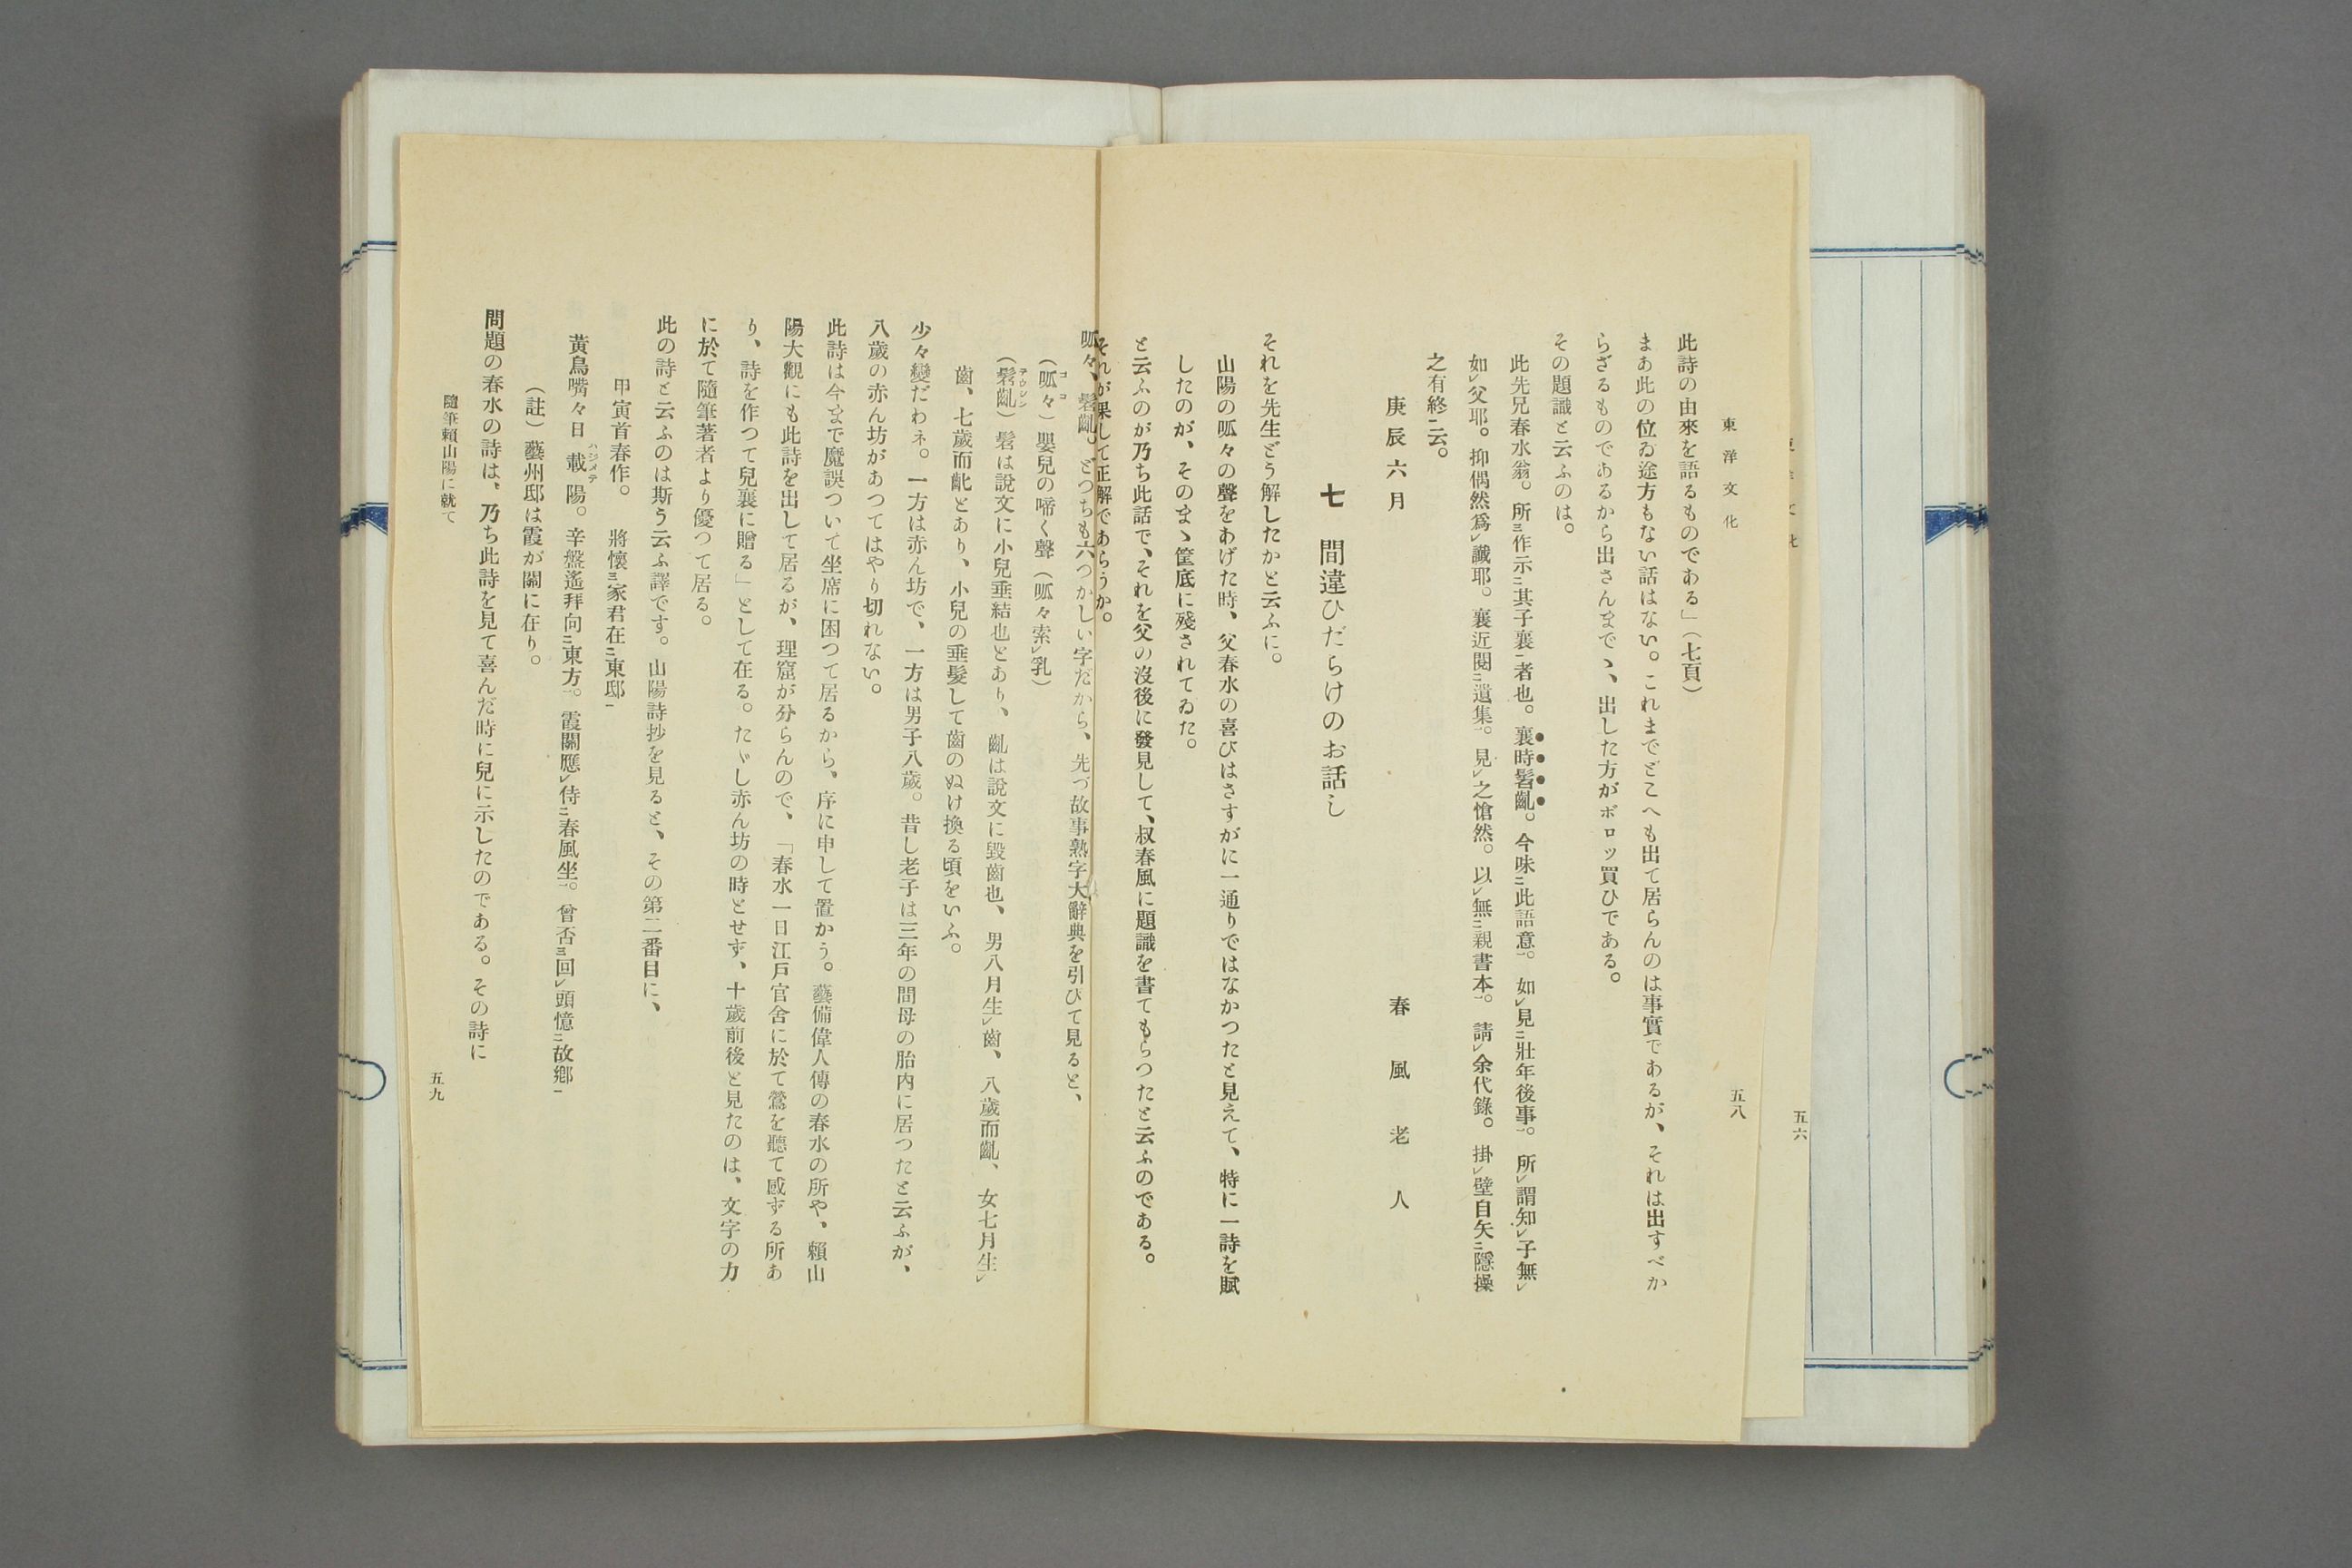 東洋文化
五八
五六
此詩の由來を語るものである」（七頁）
まあ此の位ゐ途方もない話はない。これまでどこへも出て居らんのは事實であるが、それは出すべか
らざるものであるから出さんまでゝ、出した方がボロッ買ひである。
その題識と云ふのは。
此先兄春水翁。所三作示二其子襄一者也。襄時髫齓。今味二此語意一。如レ見二壯年後事一。所レ謂知レ子無レ
如レ父耶。抑偶然爲レ讖耶。襄近閱二遺集一。見レ之愴然。以レ無二親書本一。請レ余代錄。掛レ壁自矢二隱操
之有終一云。
庚辰六月　春風老人
七　間違ひだらけのお話し
それを先生どう解したかと云ふに。
山陽の呱々の聲をあげた時、父春水の喜びはさすがに一通りではなかつたと見えて、特に一詩を賦
したのが、そのまゝ筐底に殘されてゐた。
と云ふのが乃ち此話で、それを父の沒後に發見して、叔春風に題識を書てもらつたと云ふのである。
それが果して正解であらうか。
呱々、髫齓。どつちも六つかしい字だから、先づ故事熟字大辭典を引びて見ると、
（呱々）嬰兒の啼く聲（呱々索レ乳）
ココ
（髫齓）髫は說文に小兒垂結也とあり、齓は說文に毀齒也、男八月生レ齒、八歲而齓、女七月生レ
テウシン
齒、七歲而齔とあり、小兒の垂髮して齒のぬけ換る頃をいふ。
少々變だわネ。一方は赤ん坊で、一方は男子八歲。昔し老子は三年の間母の胎内に居つたと云ふが、
八歲の赤ん坊があつてはやり切れない。
此詩は今まで魔誤ついて坐席に困つて居るから、序に申して置かう。藝備偉人傳の春水の所や、賴山
陽大觀にも此詩を出して居るが、理窟が分らんので、「春水一日江戶官舍に於て鶯を聽て感ずる所あ
り、詩を作つて兒襄に贈る」として在る。たゞし赤ん坊の時とせず、十歲前後と見たのは、文字の力
に於て隨筆著者より優つて居る。
此の詩と云ふのは斯う云ふ譯です。山陽詩抄を見ると、その第二番目に、
甲寅首春作。　將懷三家君在二東邸一
黃鳥嘴々日載陽。辛盤遙拜向二東方一。霞關應レ侍二春風坐一。曾否三回レ頭憶二故鄕一
ハジメテ
（註）藝州邸は霞が關に在り。
問題の春水の詩は、乃ち此詩を見て喜んだ時に兒に示したのである。その詩に
隨筆賴山陽に就て
五九